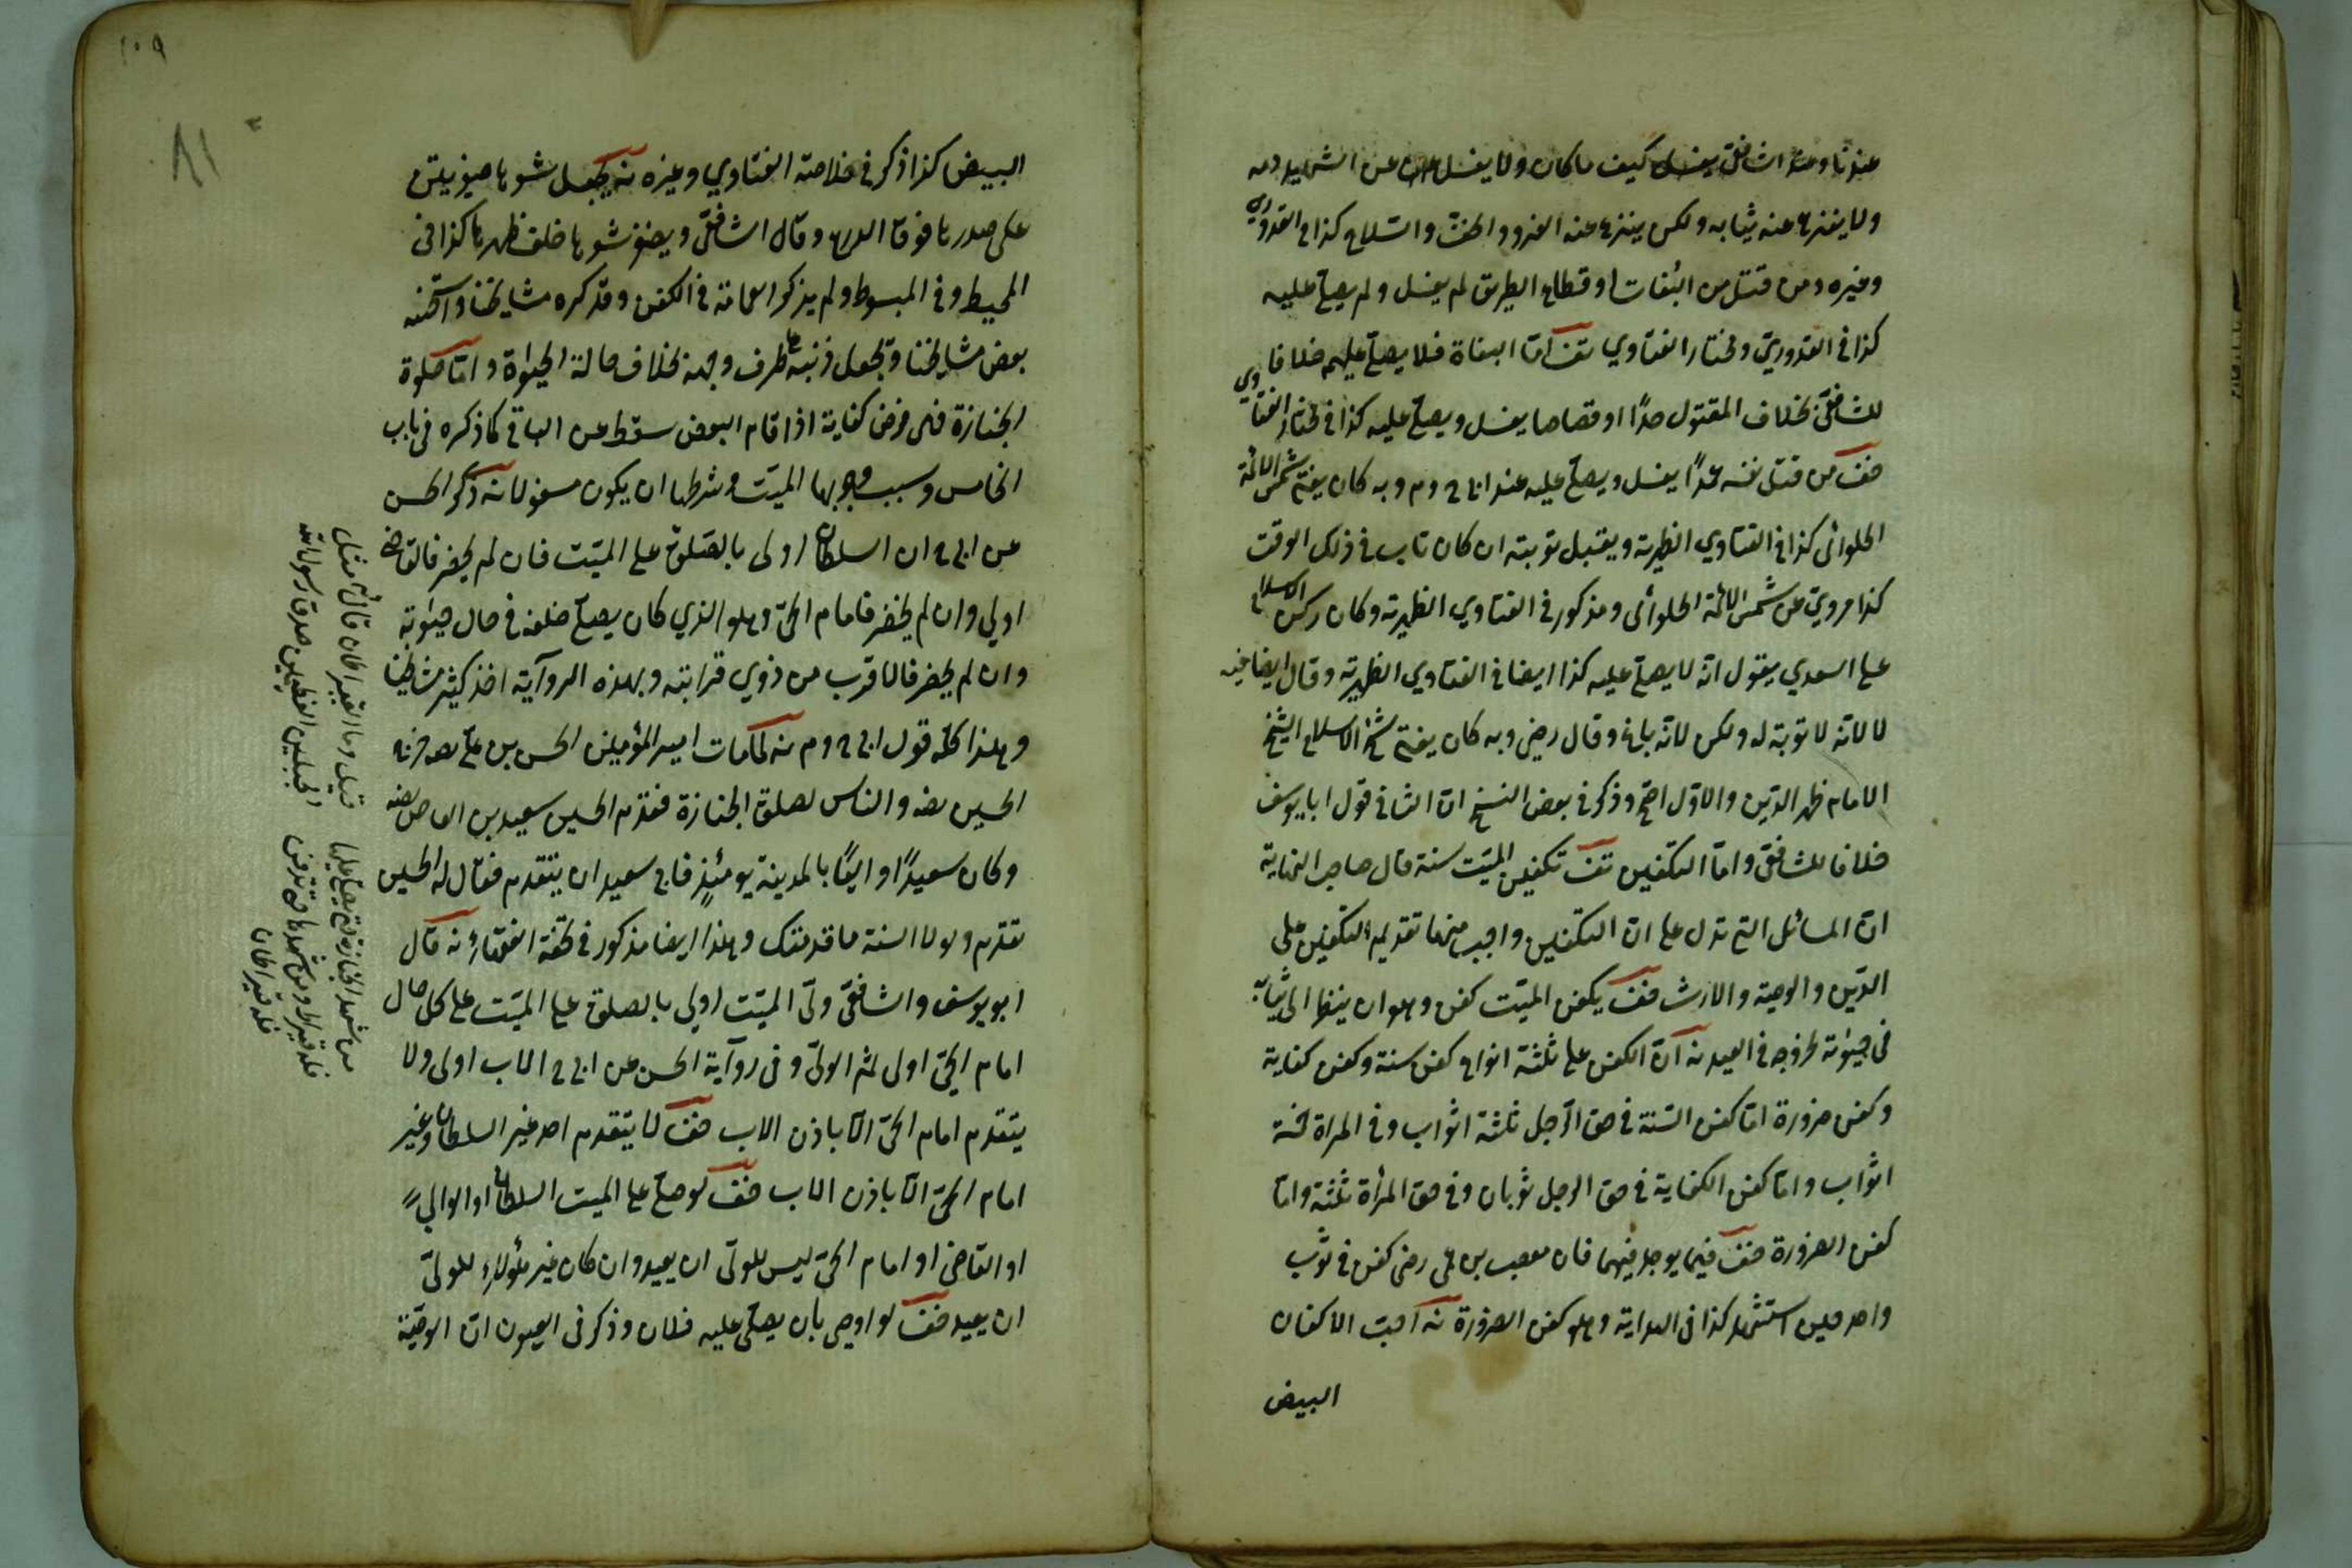 عندنا وعند الشافعي يغسل كيف ما كان ولا يغسل عن الشهيد دمه
ولا ينزع عنه ثيابه ولكن ينزع عنه الفرو والخف والسلاح كذا في القدوري
وغيره ومن قتل من البغات او قطاع الطريق لم يغسل ولم يصل عليه
كذا في القدوري ومختار الفتاوي تف اما البغاة فلا يصلى عليهم خلافا
للشافعي بخلاف المقتول حدا او قصاصا يغسل ويصلى عليه كذا في مختار الفتاوي
ضف من قتل نفسه عمدا يغسل ويصلى عليه عند ابي ح وم وبه كان يفتي شمس الائمة
الحلوائي كذا في الفتاوي الظهيرية ويقبل توبته ان كان تاب في ذلك الوقت
كذا مروي عن شمس الائمة الحلوائي ومذكور في الفتاوي الظهيرية وكان ركن الاسلام
علي السعدي يقول انه لا يصلى عليه كذا ايضا في الفتاوي الظهيرية وقال ايضا فيه
لا لانه لا توبة له ولكن لانه باغ وقال رضي وبه كان يفتي شيخ الاسلام الشيخ
الامام ظهر الدين والاول اصح وذكر في بعض النسخ ان الثاني قول ابا يوسف
خلافا للشافعي واما التكفين تف تكفين الميت سنة قال صاحب النهاية
ان المسائل التي تدل على ان التكفين واجب منها تقديم التكفين على
الدين والوصية والارث ضف يكفن الميت كفن وهو ان ينظر الى ثيابه
في حيوته لخروجه في العيد نه ان الكفن على ثلثة انواع كفن سنة وكفن كفاية
وكفن ضرورة اما كفن السنة في حق الرجل ثلثة اثواب وفي المراة خمسة
اثواب واما كفن الكفاية في حق الرجل ثوبان وفي حق المرأة ثلثة واما
كفن الضرورة ضف فيما يوجد فيهما فان مصعب بن رضي كفن في ثوب
واحد حين استشهد كذا في الهداية وهو كفن الضرورة نه احب الاكفان
البيض
١٠٩
٨١
البيض كذا ذكر في خلاصة الفتاوي وغيره نه يجعل شعرها ضفيرتين
على صدرها فوق الدرع وقال الشافعي ويضفر شعرها خلف ظهرها كذا في
المحيط وفي المبسوط ولم يذكر العمامة في الكفن وقد كره مشايخنا واستحسنه
بعض مشايخنا وتجعل ذنبه على طرف وجهه بخلاف حالة الحيوة واما صلوة
الجنازة فهي فرض كفاية اذا قام البعض سقط عن الباقي كما ذكره في باب
الخامس وسبب وجوبها الميت وشرطها ان يكون مغسولا نه ذكر الحسن
عن ابي ح ان السلطان اولى بالصلوة على الميت فان لم يحضر فالقاضي
اولي وان لم يحضر فامام الحي وهو الذي كان يصلي خلفه في حال حيوته
وان لم يحضر فالاقرب من ذوي قرابته وبهذه الرواية اخذ كثير مشايخنا
وهذا كله قول ابي ح وم نه لما مات امير المؤمنين الحسن بن علي رضه خرج
الحسين رضه والناس لصلوة الجنازة فقدم الحسين سعيد بن العاص رضه
وكان سعيدا واليا بالمدينة يومئذ فابى سعيد ان يتقدم فقال له الحسين
تقدم ولولا السنة ما قدمتك وهذا ايضا مذكور في تحفة الفقهاء نه قال
ابو يوسف والشافعي ولي الميت اولي بالصلوة على الميت على كل حال
امام الحي اولى ثم الولي وفي رواية الحسن عن ابي ح الاب اولى ولا
يتقدم امام الحي الا باذن الاب ضف لا يتقدم احد غير السلطان وغير
امام الحي الا باذن الاب ضف لو صلى على الميت السلطان او الوالي
او القاضي او امام الحي ليس للولي ان يعيد وان كان غير هؤلاء للولي
ان يعيد ضف لو اوصى بان يصلي عليه فلان وذكر في العيون ان الوصية
من شهد الجنازة حتى يصلى عليها
فله قيراط ومن شهدها حتى تدفن
فله قيراطان
قيل وما القيراطان قال مثل
الجبلين العظيمين صدق رسول الله